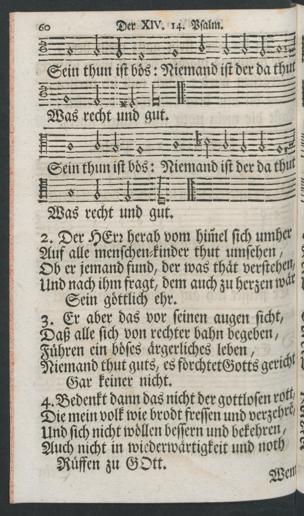 60 Der XIV. 14. Psalm.
Sein thun ist bös: Niemand ist der da thut
Was recht und gut.
Sein thun ist bös: Niemand ist der da thut
Was recht und gut.
2. Der HErr herab vom him̃el sich umher
Auf alle menschen-kinder thut umsehen,
Ob er jemand fund, der was thät verstehen,
Und nach ihm fragt, dem auch zu herzen wär
Sein göttlich ehr.
3. Er aber das vor seinen augen sicht,
Daß alle sich von rechter bahn begeben,
Führen ein böses ärgerliches leben,
Niemand thut guts, es förchtet Gotts gericht
Gar keiner nicht.
4. Bedenkt dann das nicht der gottlosen rott,
Die mein volk wie brodt fressen und verzehrẽ,
Und sich nicht wöllen bessern und bekehren,
Auch nicht in wiederwärtigkeit und noth
Rüffen zu GOtt.
Wem